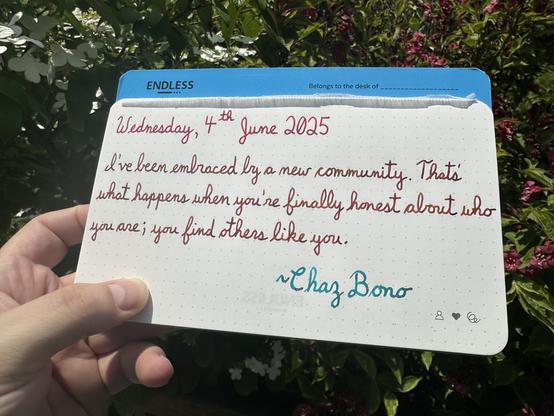 ENDLESS
Belongs to the desk of
Wednesday, 4th June 2025
I've been embraced by a new community. That's
what happens when you're finally honest about who
you are; you find others like you.
~Chaz Bono
ENDLESS